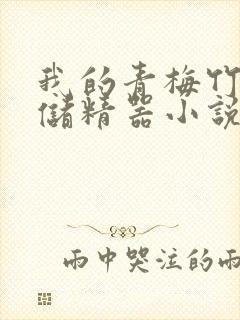 我的青梅竹
儲精器小説
雨中哭泣的雨